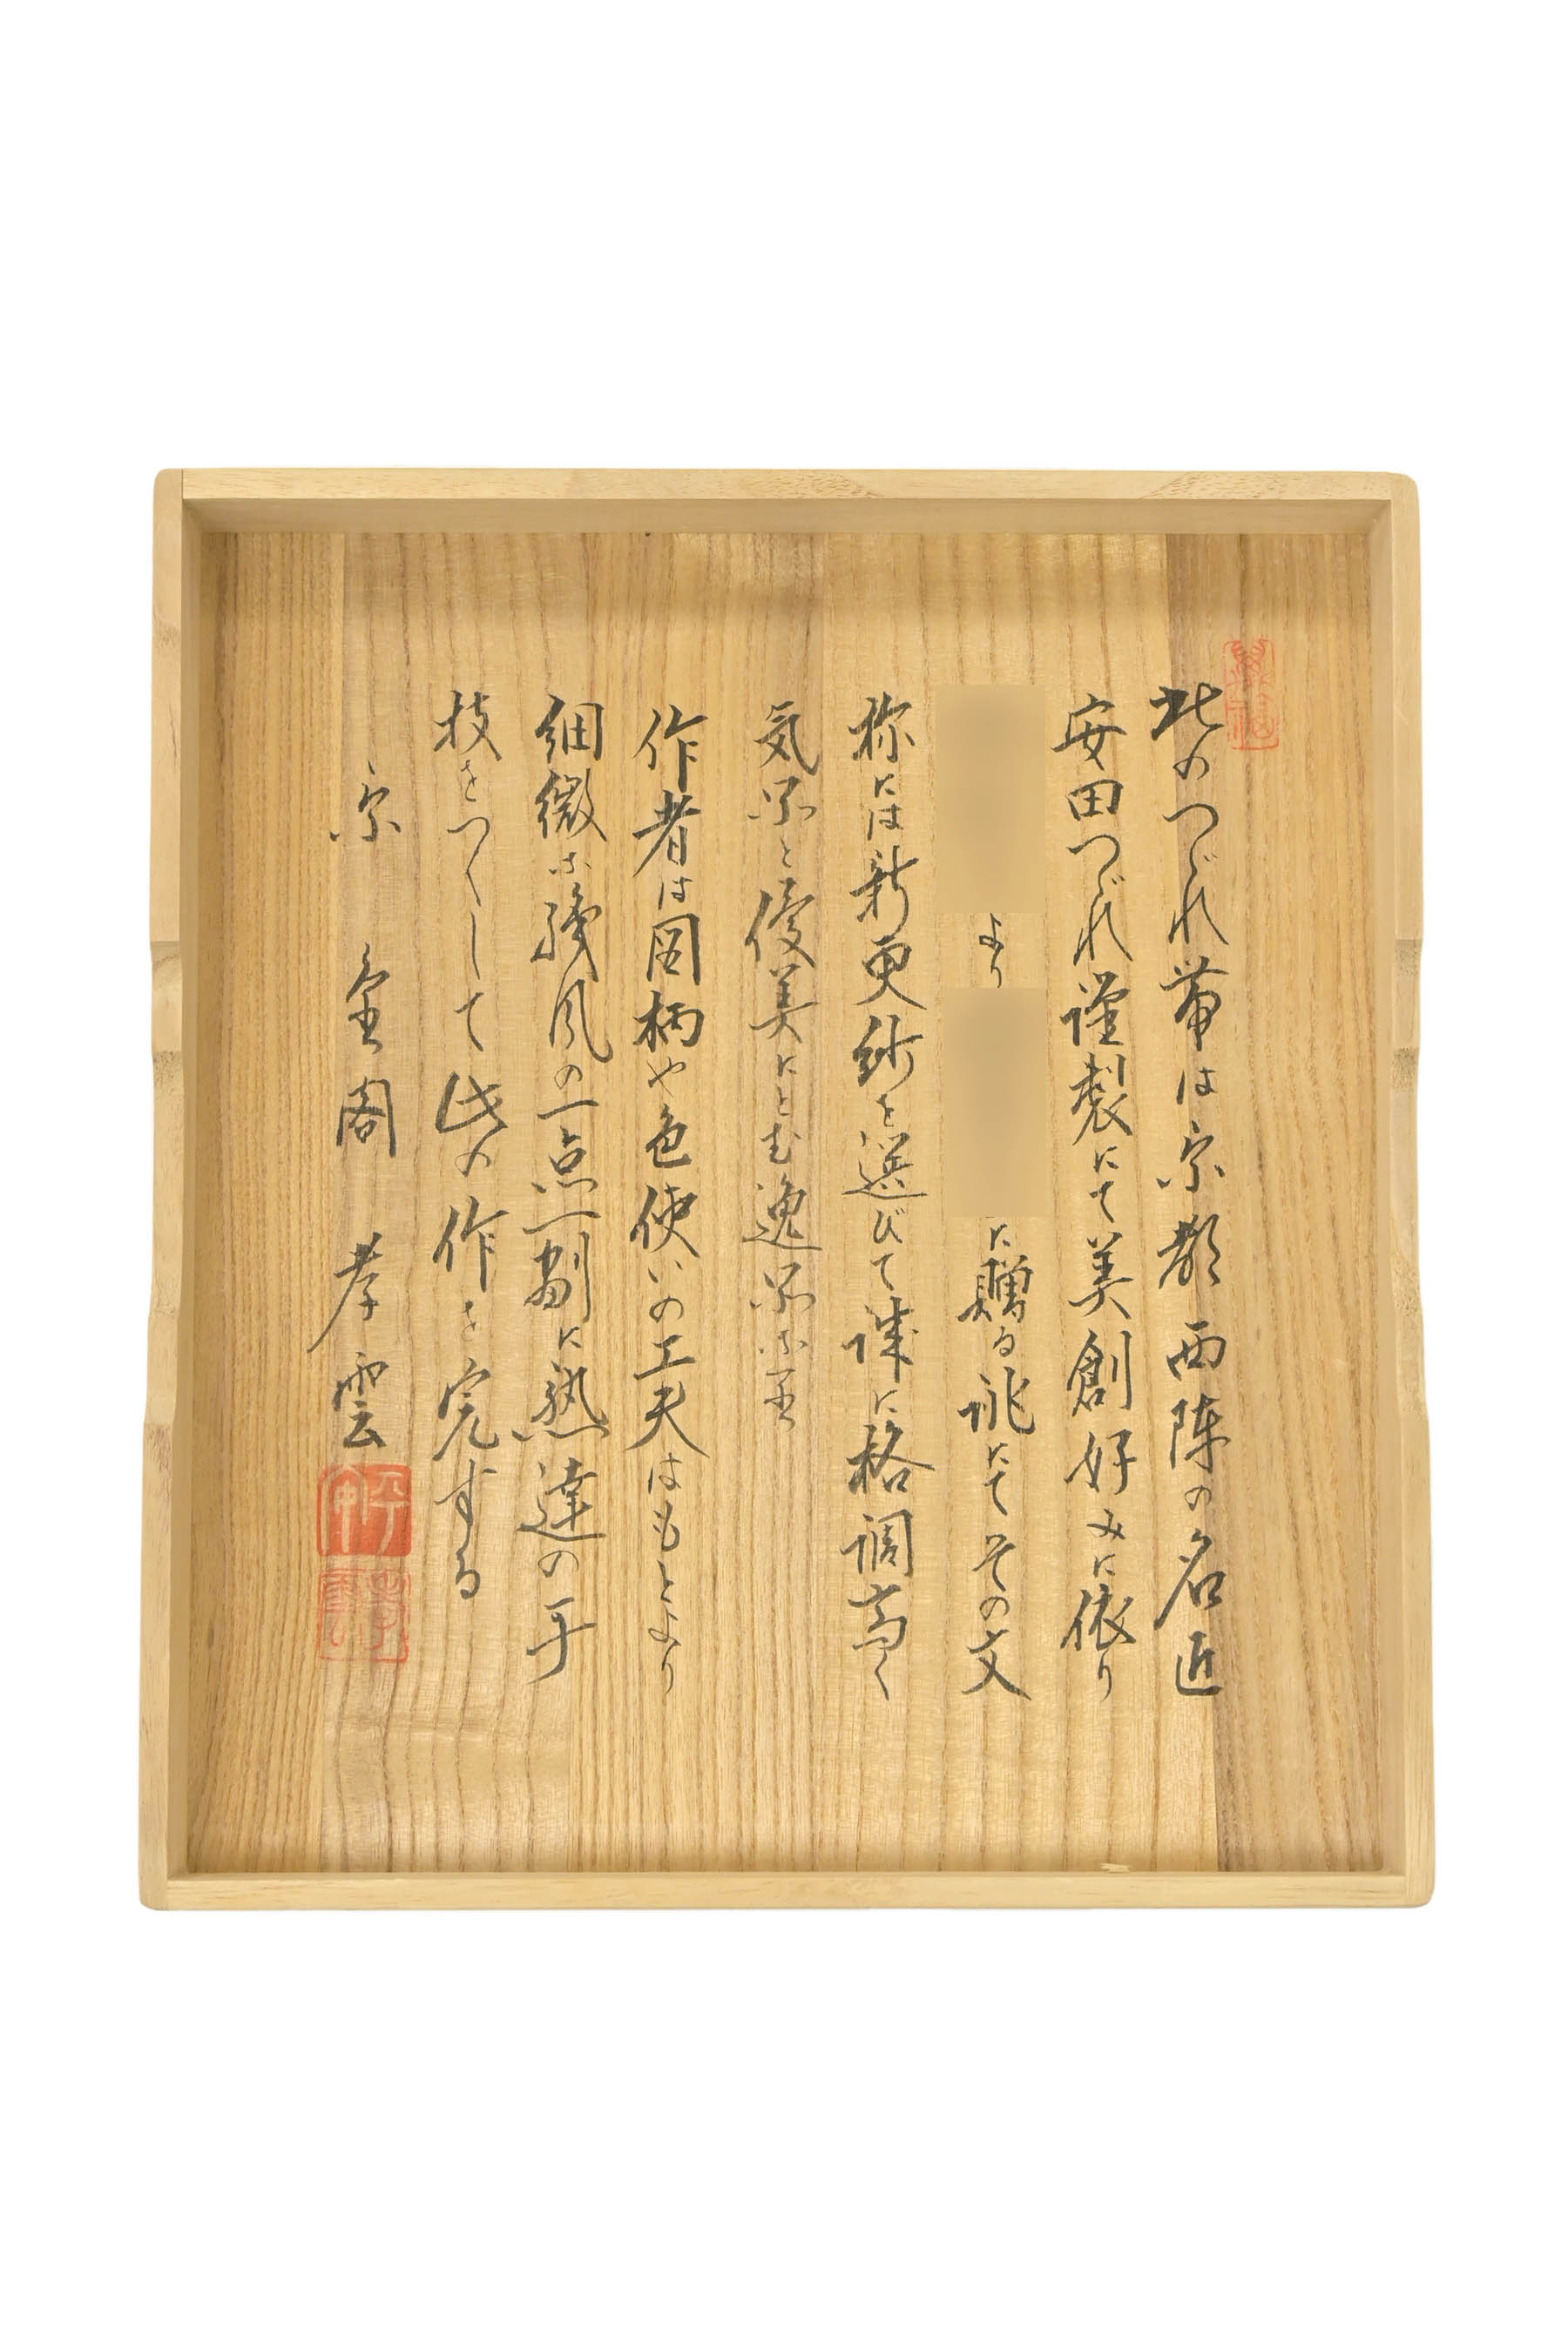 此のつづれ帯は京都西陣の名匠
安田つづれ謹製にて美創好みに依り
より に贈る誂にてその文
様には新更紗を選びて誠に格調高く
気品と優美にとむ逸品な里
作者は図柄や色使いの工夫はもとより
細微な綾風の一点一劃に熟達の手
技をつくして此の作を完する
京 金閣 孝雲